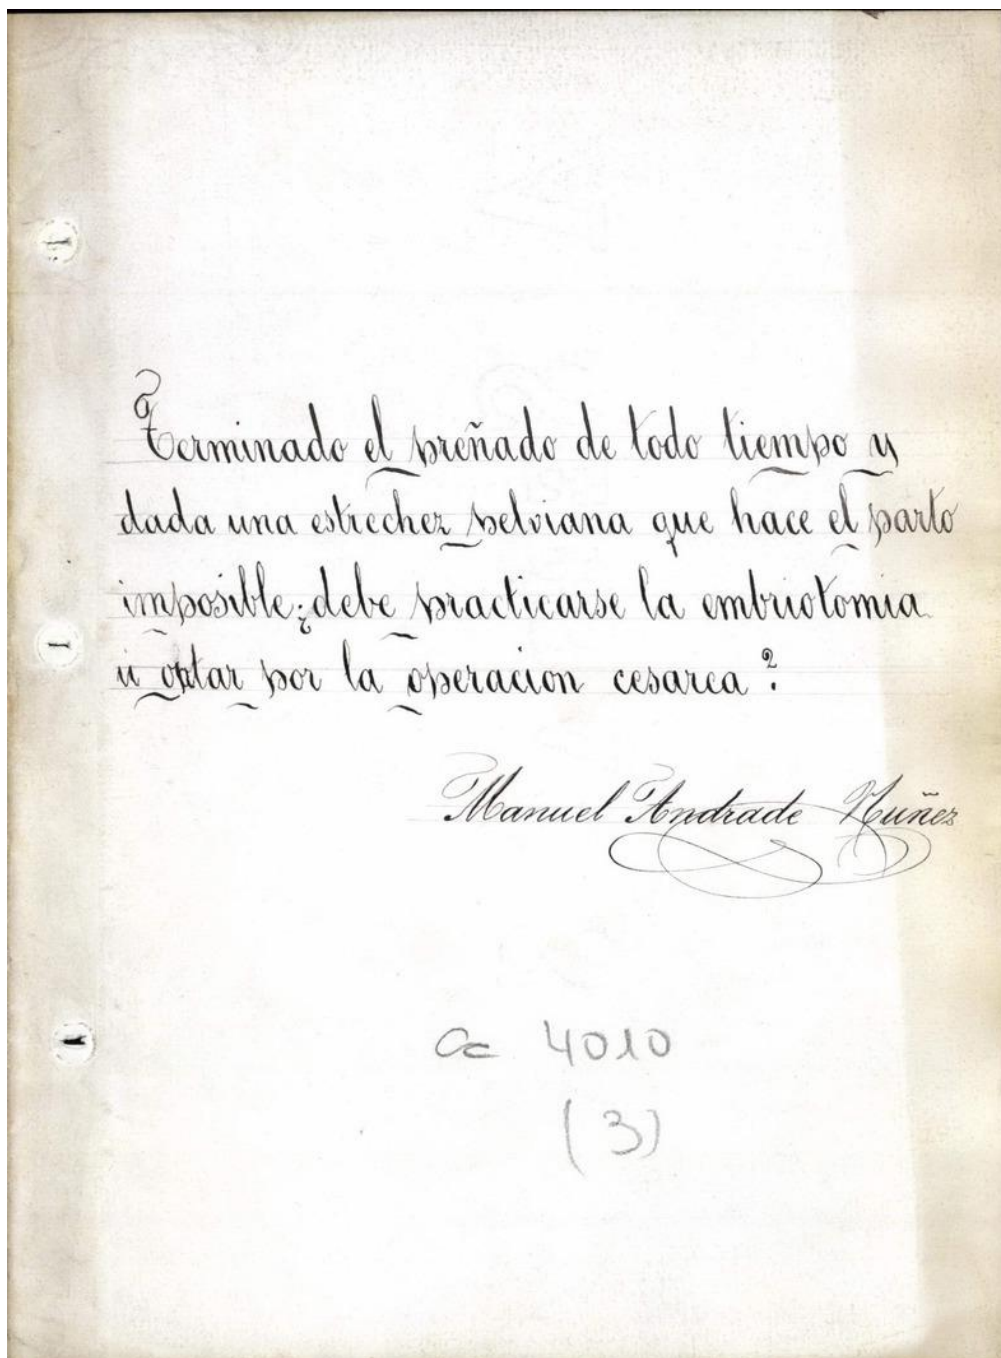 Terminado el preñado de todo tiempo y
dada una estrechez pelviana que hace el parto
imposible ¿debe practicarse la embriotomia
ú optar por la operacion cesarea?
Manuel Andrade Nuñez
Ca 4010
(3)